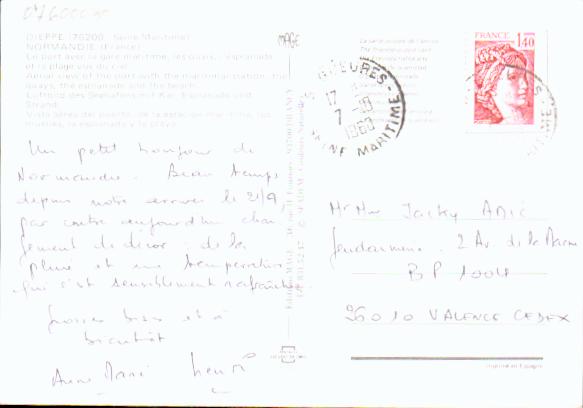 076000
DIEPPE (76200 - Seine Maritime)
NORMANDIE (France)
Le port avec sa gare maritime, les quais, l'esplanade
et la plage vus du ciel
Aerial view of the port with the maritime station, the
quays, the esplanade and the beach
Luftbild des Seehafens mit Kai, Esplanade und
Strand.
Vista aérea del puerto, de la estación marítima, los
muelles, la esplanada y la playa
MAGE
FRANCE 1,40
17 H
7 - 10
1980
SEINE MARITIME
Un petit bonjour de
Normandie. Beau temps
depuis notre arrivée le 2/9,
par contre aujourd'hui chan
gement de décor : de la
pluie et une température
qui s'est sensiblement rafraîchie
Grosses bises et à
bientôt
Anne Marie Henri
Mr Mme Jacky
Gendarmerie 2 Av. de la Marne
BP 1004
26010 VALENCE CEDEX
Imprimé en Espagne